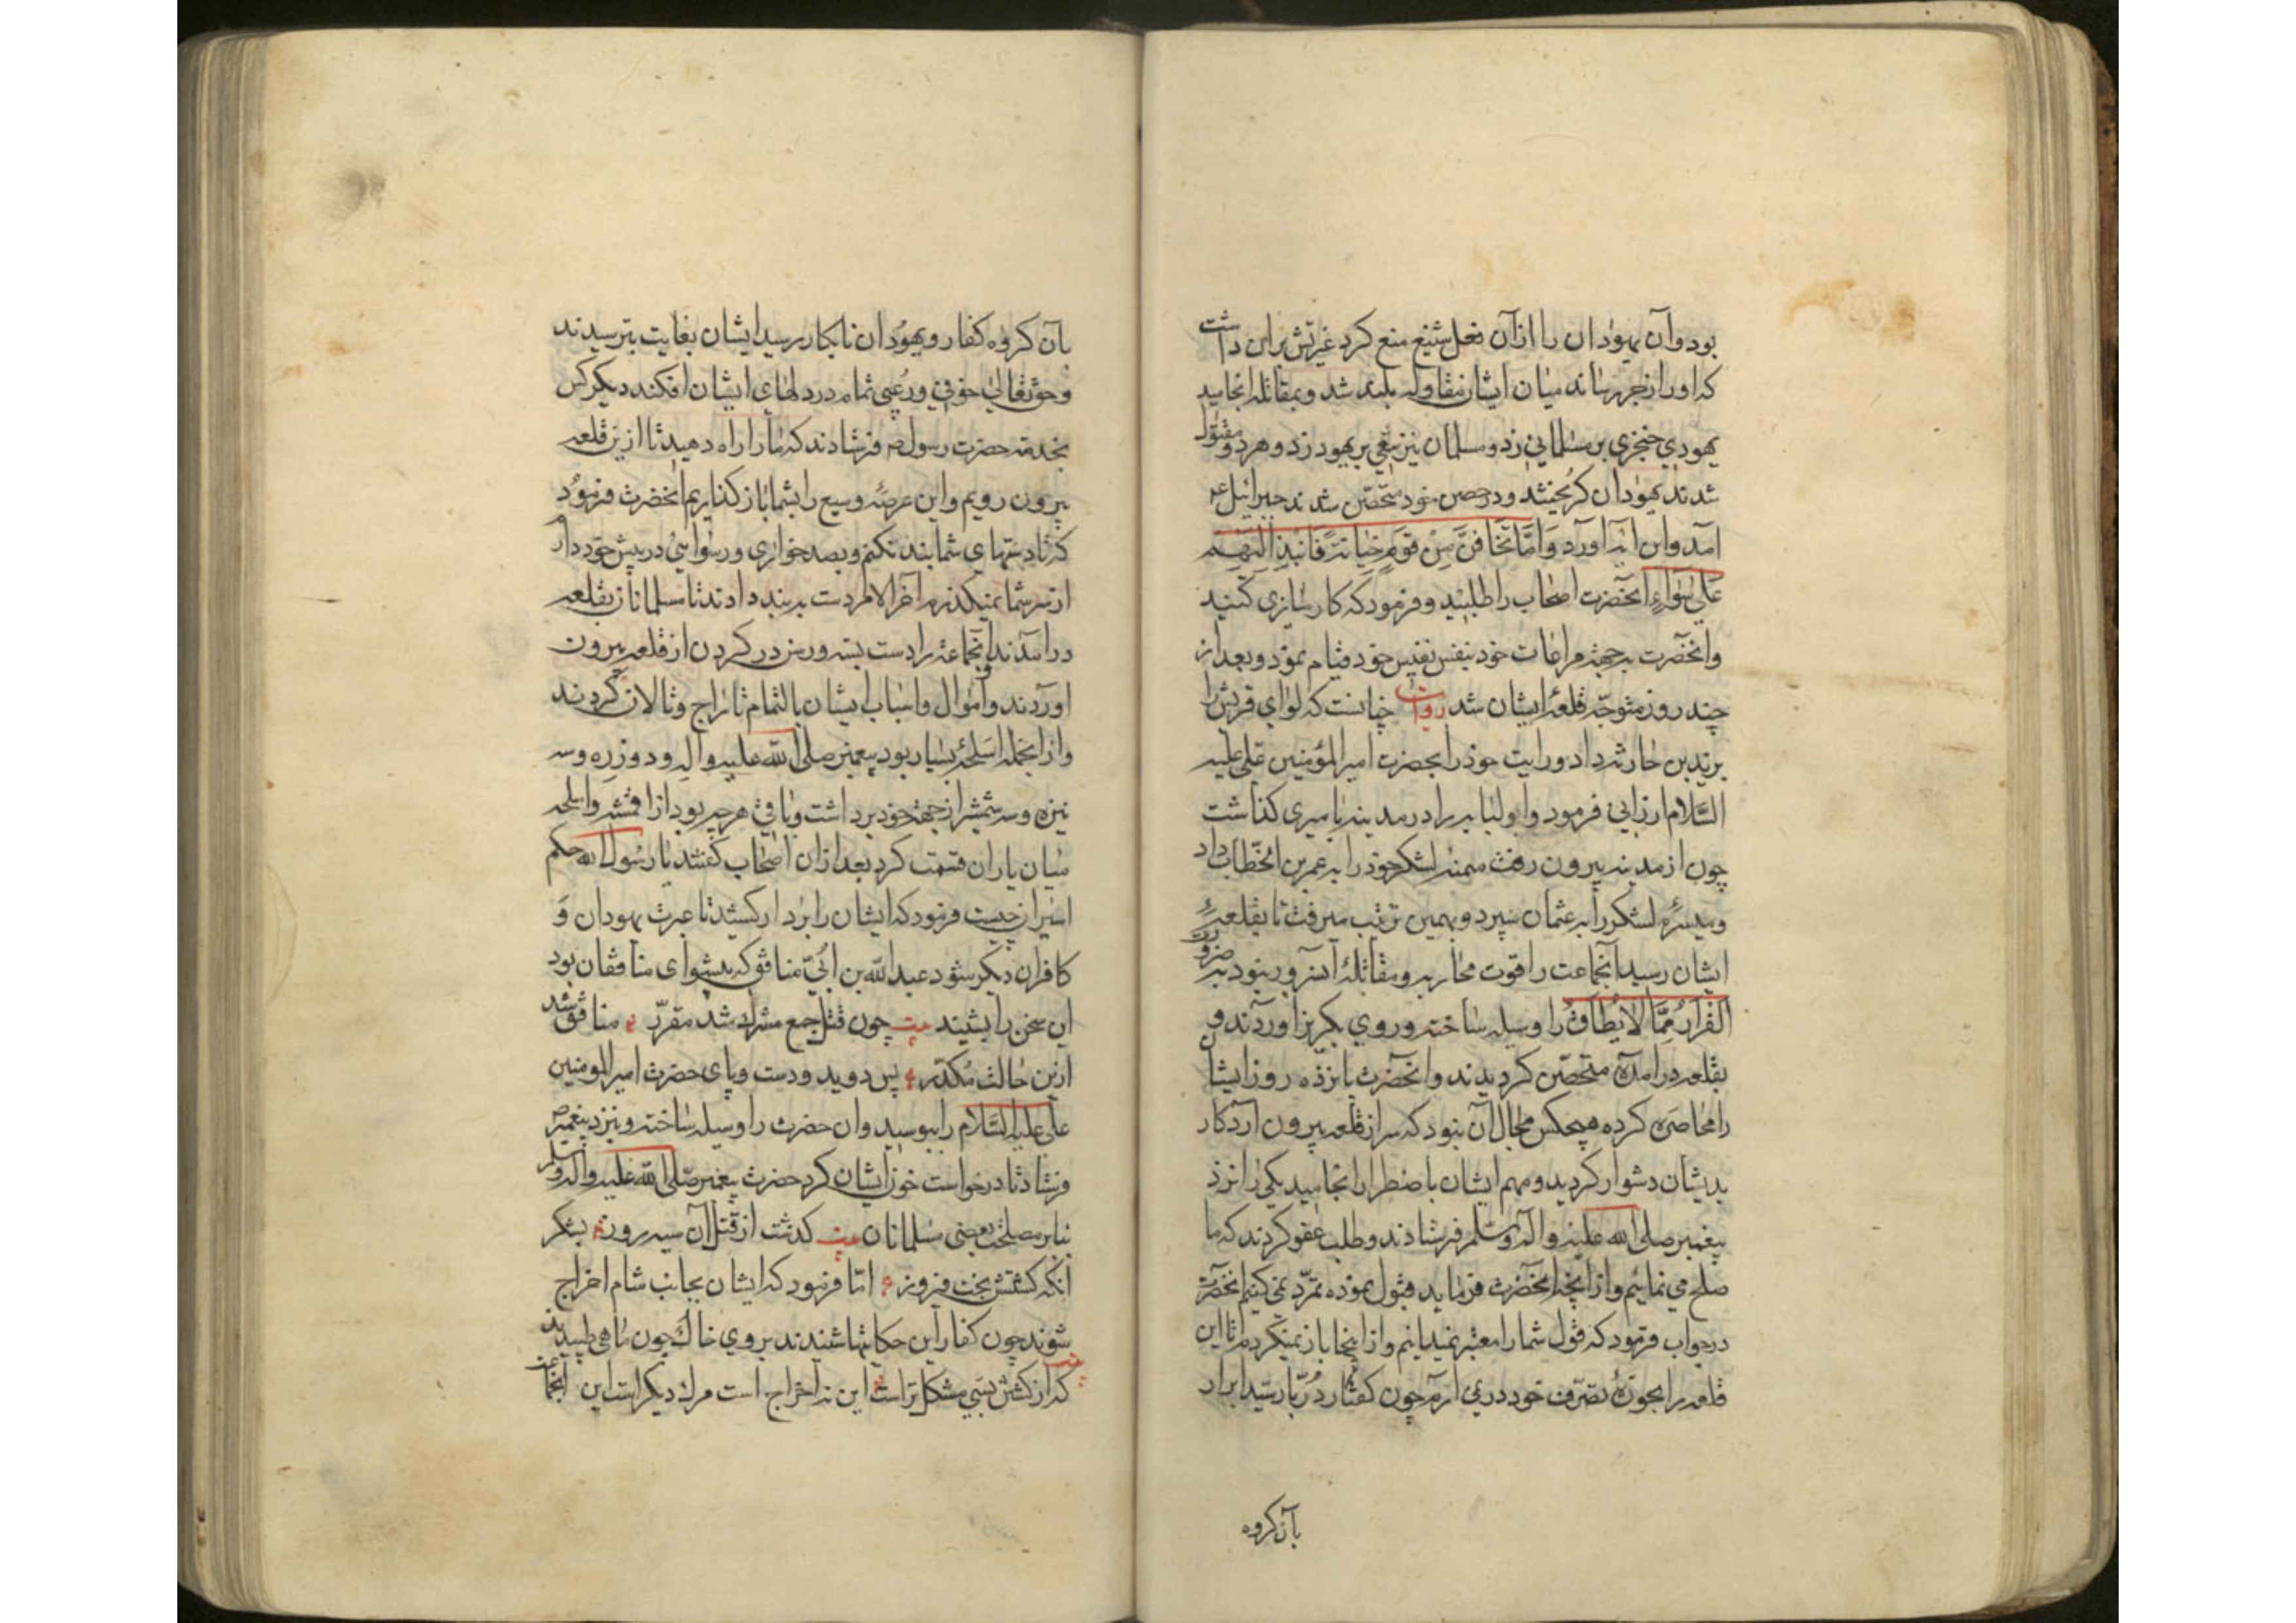 بود و آن یهودان را از آن فعل شنیع منع کرد غیرتش بر این داشت
که او را زجر رساند میان ایشان مقاوله بلند شد و بمقاتله انجامید
یهودی خنجری بر مسلمانی زد و مسلمان نیز تیغی بر یهود زد و هر دو مقتول
شدند یهودان گریختند و در حصن خود متحصّن شدند جبرائیل ع
آمد و این آیه آورد وَاِمَّا تَخَافَنَّ مِنْ قَومٍ خِیَانَةً فَانْبِذْ اِلَیْهِمْ
عَلیٰ سَوَاءٍ آنحضرت اصحاب را طلبید و فرمود که کارسازی کنید
و آنحضرت به جهة مراعات خود بنفس نفیس خود قیام نمود و بعد از
چند روز متوجّه قلعهٔ ایشان شد روایت چنانست که لوای قریش را
بزید بن حارثه داد و رایت خود را بحضرت امیر المؤمنین علی علیه
السَّلام ارزانی فرمود و ابو لبابه را در مدینه بامیری کذاشت
چون از مدینه بیرون رفت میمنهٔ لشکر خود را به عمر بن الخطّاب داد
و میسرهٔ لشکر را به عثمان سپرد و بهمین ترتیب میرفت تا بقلعهٔ
ایشان رسید آنجماعت را قوت محاربه و مقاتلهٔ آنسرور نبود به ضرورت
الفَرَارُ مِمَّا لَا یُطَاقُ را وسیله ساخته و روی بکریز آوردند و
بقلعه درآمده متحصّن کردیدند و آنحضرت پانزده روز ایشان
را محاصره کرده هیچکس مجال آن نبود که سر از قلعه بیرون آرد کار
بدیشان دشوار کردید و مهم ایشان باضطرار انجامید یکی را نزد
پیغمبر صلی الله علیه و آله وسلم فرستادند و طلب عفو کردند که ما
صلح می نمائیم و از آنچه آنحضرت فرماید قبول نموده تمرّد نمی کنیم آنحضرت
در جواب فرمود که قول شما را معتبر نمیدانم و از اینجا باز نمیکردم تا این
قلعه را بحوزهٔ تصرّف خود در نمی آرم چون کفتار دُرّبار سیّد ابرار
بآن کروه
بآن کروه کفار و یهودان نابکار رسید ایشان بغایت بترسیدند
و حق تعالیٰ خوفی و رُعبی تمام در دلهای ایشان افکند دیکر کس
بخدمت حضرت رسول ص فرستادند که ما را راه دهید تا ازین قلعه
بیرون رویم و این عرصهٔ وسیع را بشما باز کذاریم آنحضرت فرمود
که تا دستهای شما بند نکنم و بصد خواری و رسوائی در پیش خود دارم
از سر شما نمیکذرم آخر الامر دست به بند دادند تا مسلمانان بقلعه
درآمدند و آنجماعة را دست بسته و رسن در کردن از قلعه بیرون
آوردند و اموال و اسباب ایشان بالتمام تاراج و تالان کردند
و از آنجمله اسلحهٔ بسیار بود پیغمبر صلی الله علیه و آله و دو زره و سه
نیزه و سه شمشیر از جهة خود برداشت و باقی هر چه بود از اقمشه و اسلحه
میان یاران قسمت کرد بعد از آن اصحاب کفتند یا رسول الله حکم
اسیران چیست فرمود که ایشان را بر دار کشید تا عبرت یهودان وَ
کافران دیکر شود عبد الله بن اُبَیّ منافق که پیشوای منافقان بود
این سخن را بشنید بیت چون قتل جمع مشرک شد مقرّر منافق شد
ازین حالت مُکدّر پس دوید و دست و پای حضرت امیر المومنین
علی علیه السَّلام را ببوسید و آن حضرت را وسیله ساخته و بنزد پیغمبر ص
فرستاد تا درخواست خون ایشان کرد حضرت پیغمبر صلی الله علیه و آله وسلم
بنابر مصلحت بعضی مسلمانان بیت کذشت از قتل آن سیه روز بشکر
آنکه کشتش بخت فیروز امّا فرمود که ایشان بجانب شام اخراج
شوند چون کفار این حکایتها شنیدند بروی خاک چون ماهی طپیدند
بیت که از کشتن بسی مشکلتر است این نه اخراج است مرک دیکر است این آنجماعت